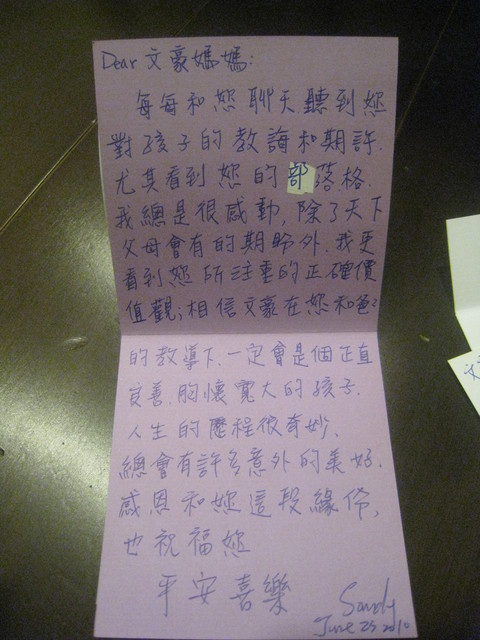 Dear 文豪媽媽:
每每和您聊天聽到您
對孩子的教誨和期許.
尤其看到您的部落格.
我總是很感動, 除了天下
父母會有的期盼外, 我更
看到您所注重的正確價
值觀; 相信文豪在您和爸爸
的教導下, 一定會是個正直
良善. 胸懷寬大的孩子.
人生的歷程很奇妙、
總會有許多意外的美好.
感恩和您這段緣份,
也祝福您
平安喜樂
Sandy
June 23 2010